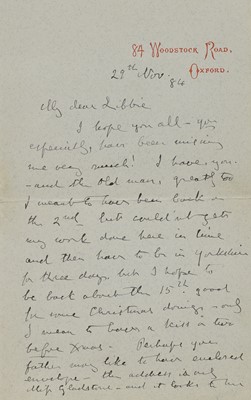 84 Woodstock Road,
Oxford.
29th Nov. 84
My dear Libbie
I hope you all - you
especially, have been missing
me very much! I have, you
- and the old man, greatly too
I meant to have been back on
the 2nd but couldn't get
my work done here in time
and then have to be in Yorkshire
for three days but I hope to
be back about the 15th - good
for some Christmas doings - only
I mean to have a kiss or two
before Xmas - Perhaps your
father may like to have enclosed
envelope - the address is only
Gladstone - and it looks to be